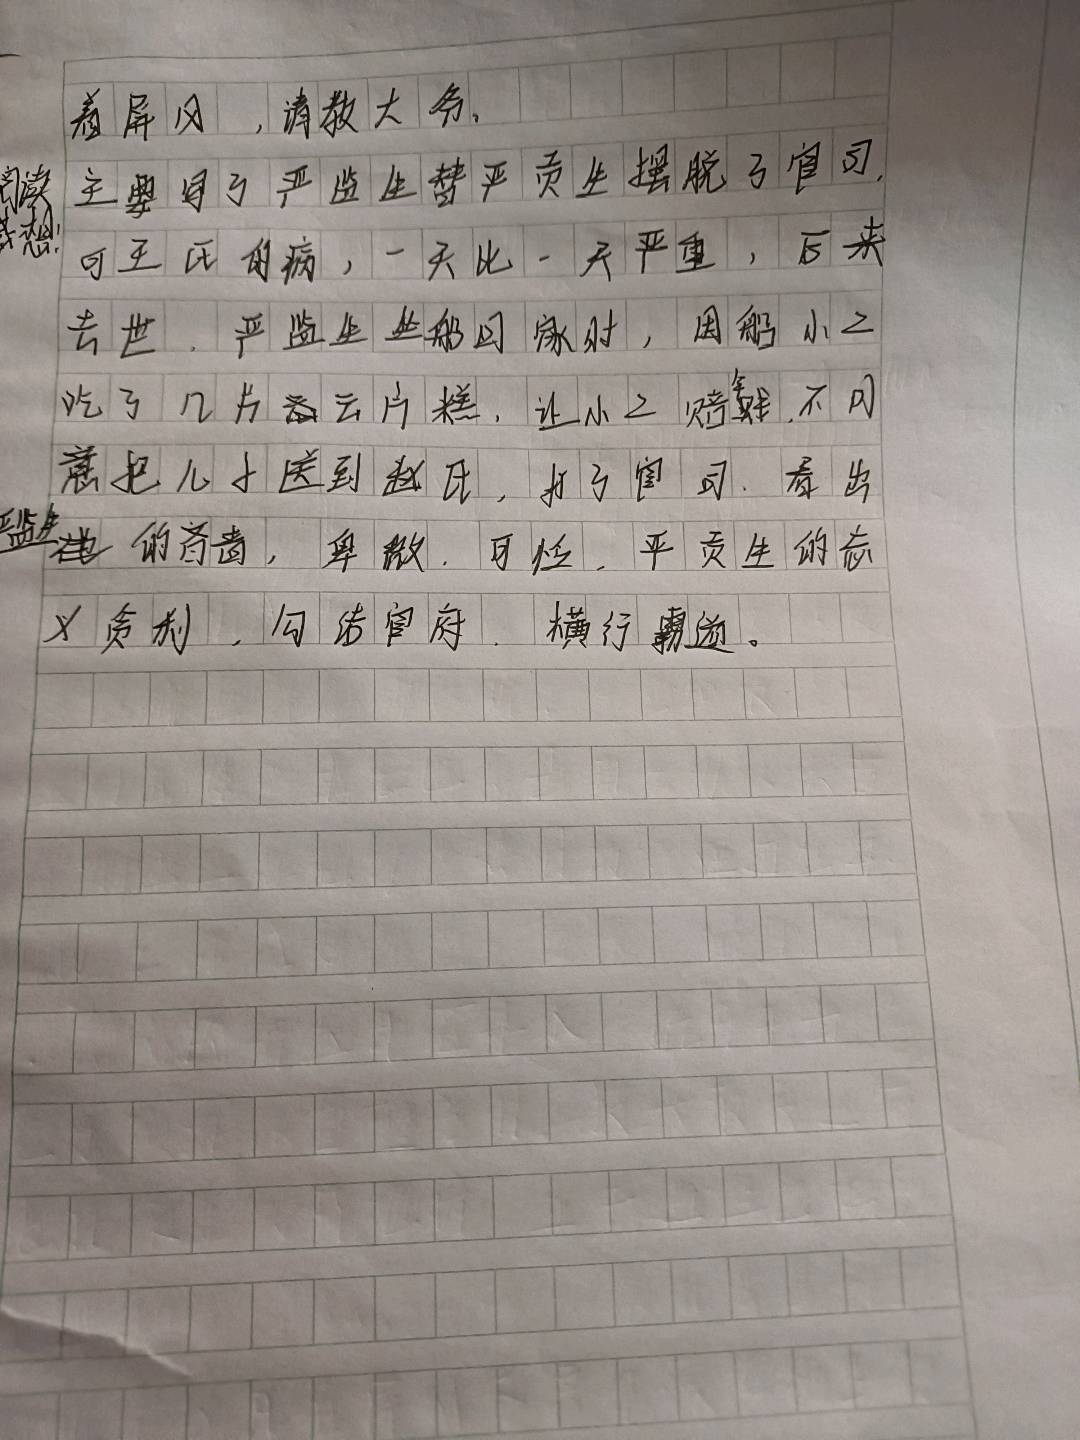 着屏风，请教大爷。
阅读感想：
主要写了严监生替严贡生摆脱了官司，
可王氏的病，一天比一天严重，后来
去世．严监生坐船回家时，因船小二
吃了几片云片糕，让小二赔钱．不同
意把儿子送到赵氏，打了官司．看出
严监生的吝啬，卑微．可怜．严贡生的忘
义贪利，勾结官府．横行霸道。